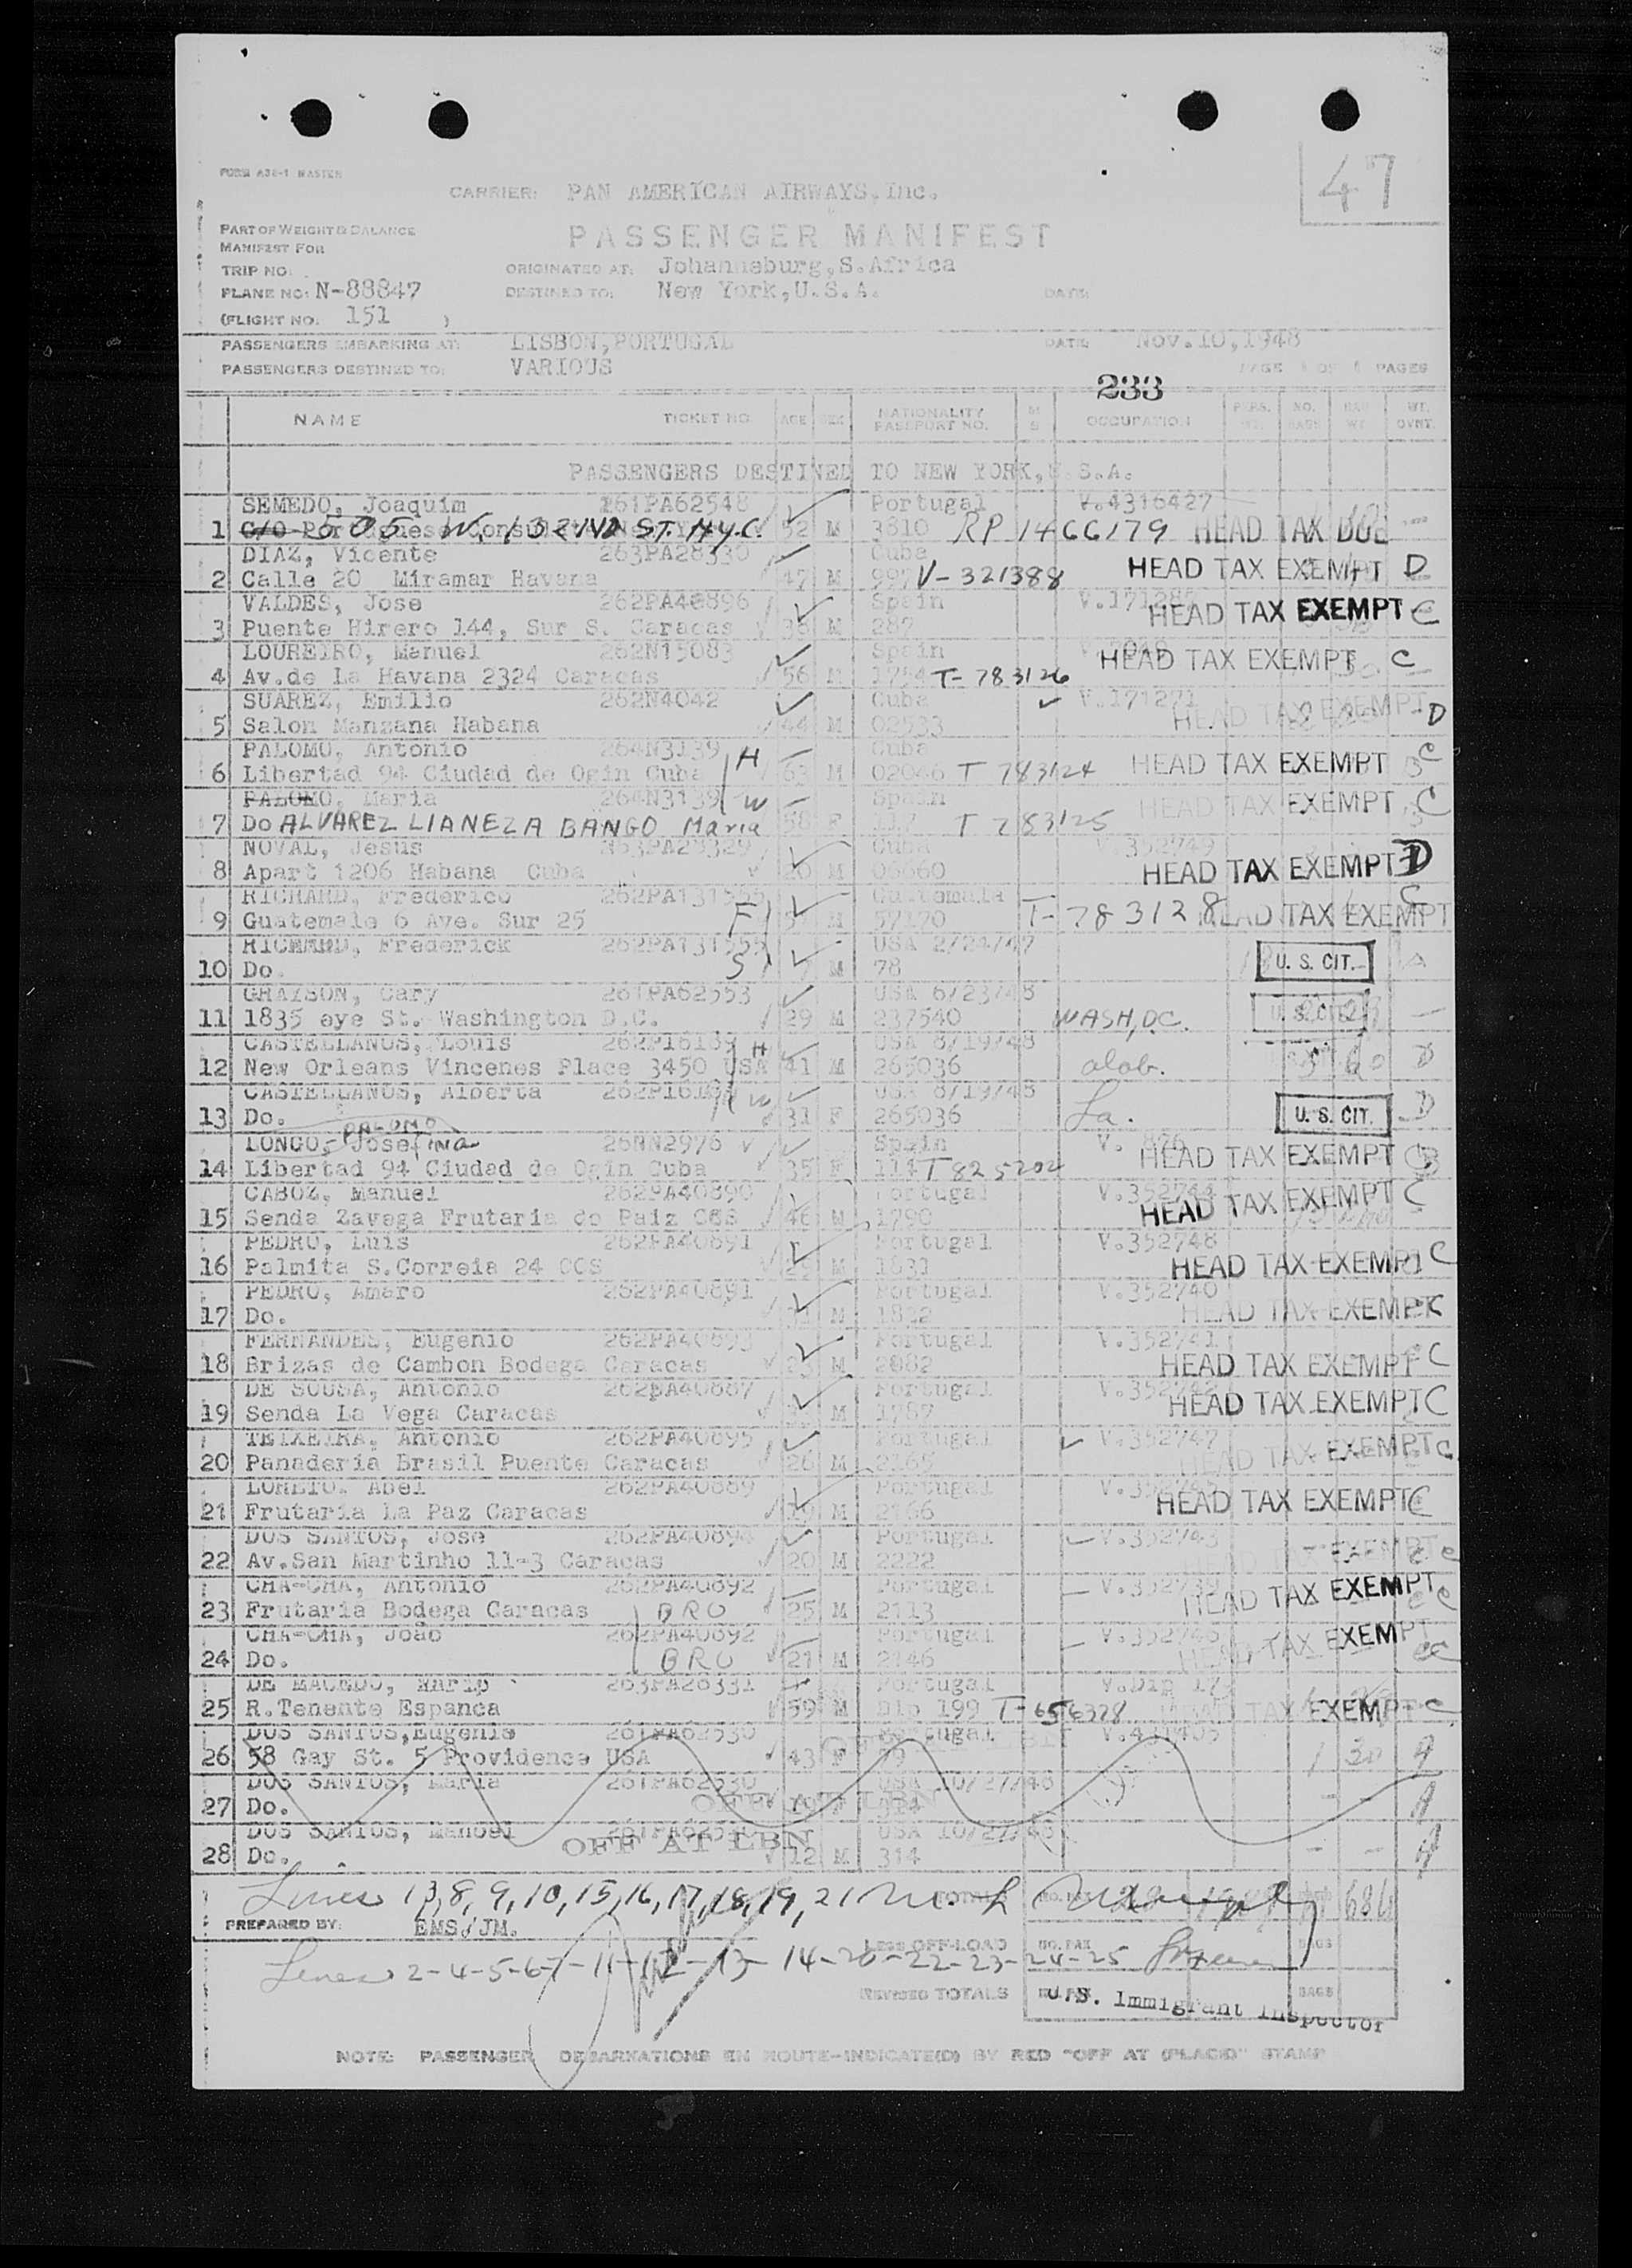 FORM A30-1 MASTER
47
CARRIER: PAN AMERICAN AIRWAYS, Inc.
PART OF WEIGHT & BALANCE
MANIFEST FOR
PASSENGER MANIFEST
TRIP NO.
ORIGINATED AT: Johannsburg, S. Africa
PLANE NO: N-88847
DESTINED TO: New York, U.S.A.
DATE:
(FLIGHT NO. 151 )
PASSENGERS EMBARKING AT: LISBON, PORTUGAL DATE: Nov. 10, 1948
PASSENGERS DESTINED TO: VARIOUS PAGE 1 OF 1 PAGES
233
NAME TICKET NO. AGE SEX NATIONALITY PASSPORT NO. M S OCCUPATION PERS. WT. NO. BAGS BAG WT. WT. OVHT.
PASSENGERS DESTINED TO NEW YORK, U.S.A.
SEMEDO, Joaquim 261PA62548 Portugal V.4316427
1 C/O Portuguese Consulate 505 W. 132ND ST. N.Y.C. 52 M 3810 RP 1466179 HEAD TAX DUE
DIAZ, Vicente 263PA28330 Cuba
2 Calle 20 Miramar Havana 47 M 997 V-321388 HEAD TAX EXEMPT D
VALDES, Jose 262PA40896 Spain
3 Puente Hirero 144, Sur S. Caracas 38 M 287 HEAD TAX EXEMPT C
LOUREIRO, Manuel 262N15083 Spain
4 Av.de La Havana 2324 Caracas 56 M 1754 T-783126 HEAD TAX EXEMPT C
SUAREZ, Emilio 262N4042 Cuba V.171271
5 Salon Manzana Habana 44 M 02533 HEAD TAX EXEMPT D
PALOMO, Antonio 264N3139 H Cuba
6 Libertad 94 Ciudad de Ogin Cuba 63 M 02046 T 783124 HEAD TAX EXEMPT C
PALOMO, Maria 264N3139 W Spain
7 Do ALVAREZ LIANEZA BANGO Maria 58 F 117 T 783125 HEAD TAX EXEMPT C
NOVAL, Jesus 263PA28329 Cuba V.352749
8 Apart 1206 Habana Cuba M 06660 HEAD TAX EXEMPT D
RICHARD, Frederico 262PA131555 Guatemala
9 Guatemale 6 Ave. Sur 25 F M 57170 T-783128 HEAD TAX EXEMPT C
RICHARD, Frederick 262PA131555 USA 2/24/47
10 Do. S 7 M 78 U. S. CIT. A
GRAYSON, Cary 261PA62553 USA 6/23/48
11 1835 eye St. Washington D.C. 29 M 237540 WASH, D.C. U. S. CIT.
CASTELLANOS, Louis 262P16189 H USA 8/19/48
12 New Orleans Vincenes Place 3450 USA 41 M 265036 alab. D
CASTELLANOS, Alberta W USA 8/19/48
13 Do. 31 F 265036 La. U. S. CIT. D
LONGO, Josefina PALOMO 2976 Spain
14 Libertad 94 Ciudad de Ogin Cuba 35 F T 825202 HEAD TAX EXEMPT C
CABOZ, Manuel 262PA40890 Portugal V.352744
15 Senda Zavega Frutaria do Paiz CCS 46 M 1790 HEAD TAX EXEMPT C
PEDRO, Luis 262PA40891 Portugal V.352748
16 Palmita S.Correia 24 CCS M 1831 HEAD TAX EXEMPT C
PEDRO, Amaro 262PA40891 Portugal V.352740
17 Do. M 1822 HEAD TAX EXEMPT C
FERNANDES, Eugenio 262PA40893 Portugal V.352741
18 Brizas de Cambon Bodega Caracas 23 M 2082 HEAD TAX EXEMPT C
DE SOUSA, Antonio 262PA40887 Portugal V.352742
19 Senda La Vega Caracas M 1787 HEAD TAX EXEMPT C
TEIXEIRA, Antonio 262PA40895 Portugal V.352747
20 Panaderia Brasil Puente Caracas 26 M HEAD TAX EXEMPT C
LORETO, Abel 262PA40889 Portugal
21 Frutaria La Paz Caracas 19 M 2166 HEAD TAX EXEMPT C
DOS SANTOS, Jose 262PA40894 Portugal V.352743
22 Av.San Martinho 11-3 Caracas 20 M 2222 EXEMPT C
CHA-CHA, Antonio 262PA40892 Portugal V.352739
23 Frutaria Bodega Caracas BRO 25 M 2113 HEAD TAX EXEMPT C
CHA-CHA, João 262PA40892 Portugal
24 Do. BRO 21 M 2146 HEAD TAX EXEMPT C
DE MACEDO, Mario 263PA28331 Portugal V.Dip
25 R.Tenente Espanca 59 M Dip 199 T-656328 HEAD TAX EXEMPT C
DOS SANTOS, Eugenia 261PA62530 Portugal
26 58 Gay St. 5 Providence USA 43 F 1 30 A
DOS SANTOS, Maria 261PA62530 USA 10/27/48
27 Do. OFF AT LBN A
DOS SANTOS, Manoel USA 10/27/48
28 Do. OFF AT LBN 12 M 314 A
Lines 13, 8, 9, 10, 15, 16, 17, 18, 19, 21 TOTALS NO. PAX 686
PREPARED BY: EMS/JM.
LESS OFF-LOAD NO. PAX BAGS
Lines 2-4-5-6-7-11-12-13-14-20-22-23-24-25
REVISED TOTALS BAGS
U.S. Immigrant Inspector
NOTE: PASSENGER DEBARKATIONS EN ROUTE-INDICATE(D) BY RED "OFF AT (PLACE)" STAMP